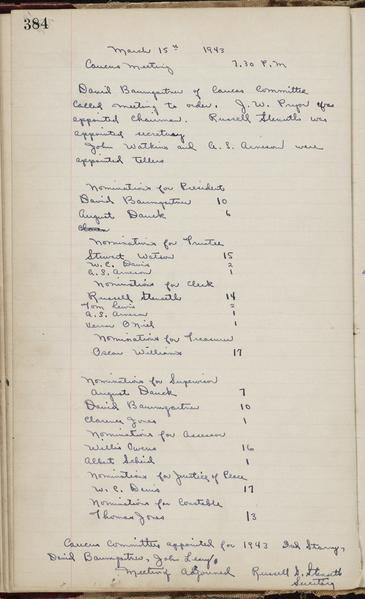 384
March 15th 1943
Caucus Meeting 7.30 P.M
David Baumgartner of Caucus Committee
called meeting to order. J.W. Pryor was
appointed Chairman. Russell was
appointed secretary
John Watkins and A.S. Arneson were
appointed tellers
Nominations for President
David Baumgartner 10
August Dauck 6
Nominations for Trustee
Stewart Watson 15
W.C. Davis 2
A.S. Arneson 1
Nominations for Clerk
Russell 14
Tom Lewis 2
A.S. Arneson 1
Vernon O'Niel 1
Nominations for Treasurer
Oscar Williams 17
Nominations for Supervisor
August Dauck 7
David Baumgartner 10
Clarence Jones 1
Nominations for Assessor
Willis Owens 16
Albert 1
Nominations for Justice of Peace
W.C. Davis 17
Nominations for Constable
Thomas Jones 13
Caucus Committee appointed for 1943
David Baumgartner, John
Meeting Adjourned Russell
Secretary